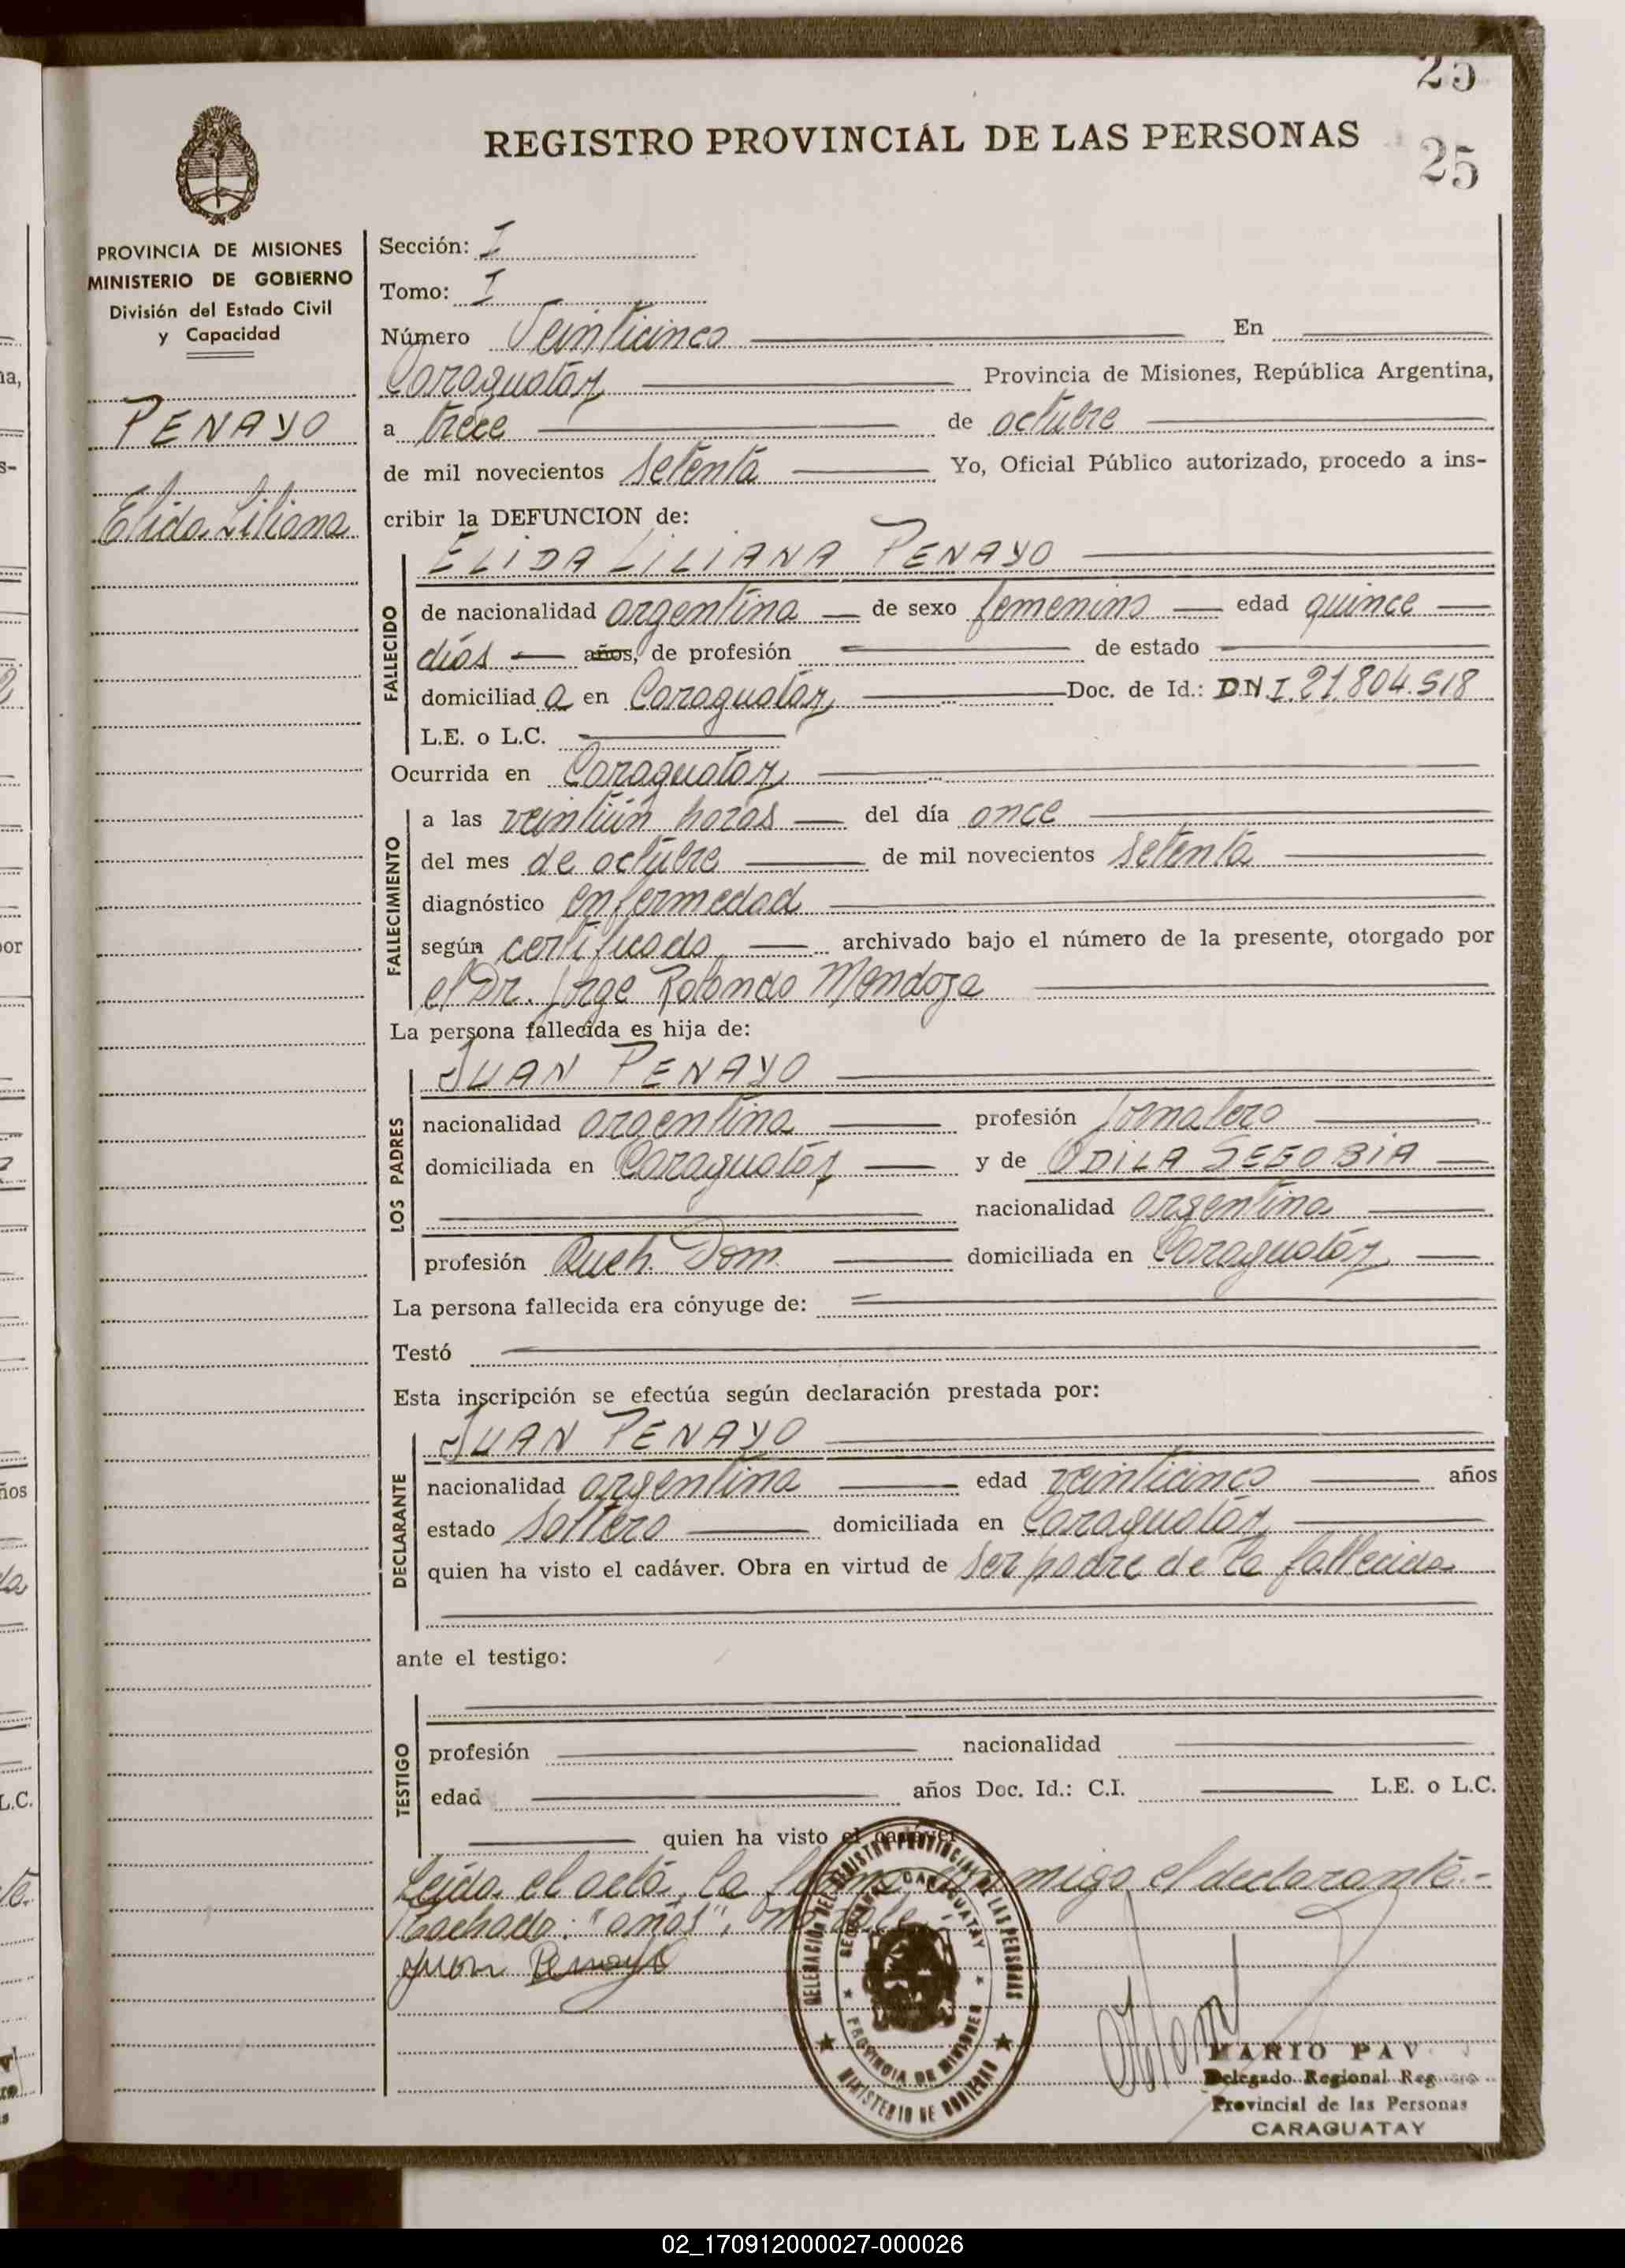 25
REGISTRO PROVINCIAL DE LAS PERSONAS
25
PROVINCIA DE MISIONES
MINISTERIO DE GOBIERNO
División del Estado Civil
y Capacidad
PENAYO
Elida Liliana
Sección: I
Tomo: I
Número Veinticinco En
Caraguatay Provincia de Misiones, República Argentina,
a trece de octubre
de mil novecientos setenta Yo, Oficial Público autorizado, procedo a ins-
cribir la DEFUNCION de:
FALLECIDO
ELIDA LILIANA PENAYO
de nacionalidad argentina de sexo femenino edad quince
días años, de profesión de estado
domiciliad a en Caraguatay Doc. de Id.: D.N.I. 21.804.518
L.E. o L.C.
Ocurrida en Caraguatay
FALLECIMIENTO
a las veintiún horas del día once
del mes de octubre de mil novecientos setenta
diagnóstico enfermedad
según certificado archivado bajo el número de la presente, otorgado por
el Dr. Jorge Rolando Mendoza
La persona fallecida es hija de:
LOS PADRES
JUAN PENAYO
nacionalidad argentina profesión Jornalero
domiciliada en Caraguatay y de ODILA SEGOBIA
nacionalidad argentina
profesión Queh. Dom. domiciliada en Caraguatay
La persona fallecida era cónyuge de:
Testó
Esta inscripción se efectúa según declaración prestada por:
DECLARANTE
JUAN PENAYO
nacionalidad argentina edad veinticinco años
estado soltero domiciliada en Caraguatay
quien ha visto el cadáver. Obra en virtud de ser padre de la fallecida
ante el testigo:
TESTIGO
profesión nacionalidad
edad años Doc. Id.: C.I. L.E. o L.C.
quien ha visto el cadáver
Leída el acta, la firma conmigo el declarante.-
Tachado: "años", no vale
Juan Penayo
DELEGACIÓN DEL REGISTRO PROVINCIAL DE LAS PERSONAS
CARAGUATAY
PROVINCIA DE MISIONES
MINISTERIO DE GOBIERNO
MARIO PAV
Delegado Regional Reg
Provincial de las Personas
CARAGUATAY
02_170912000027-000026